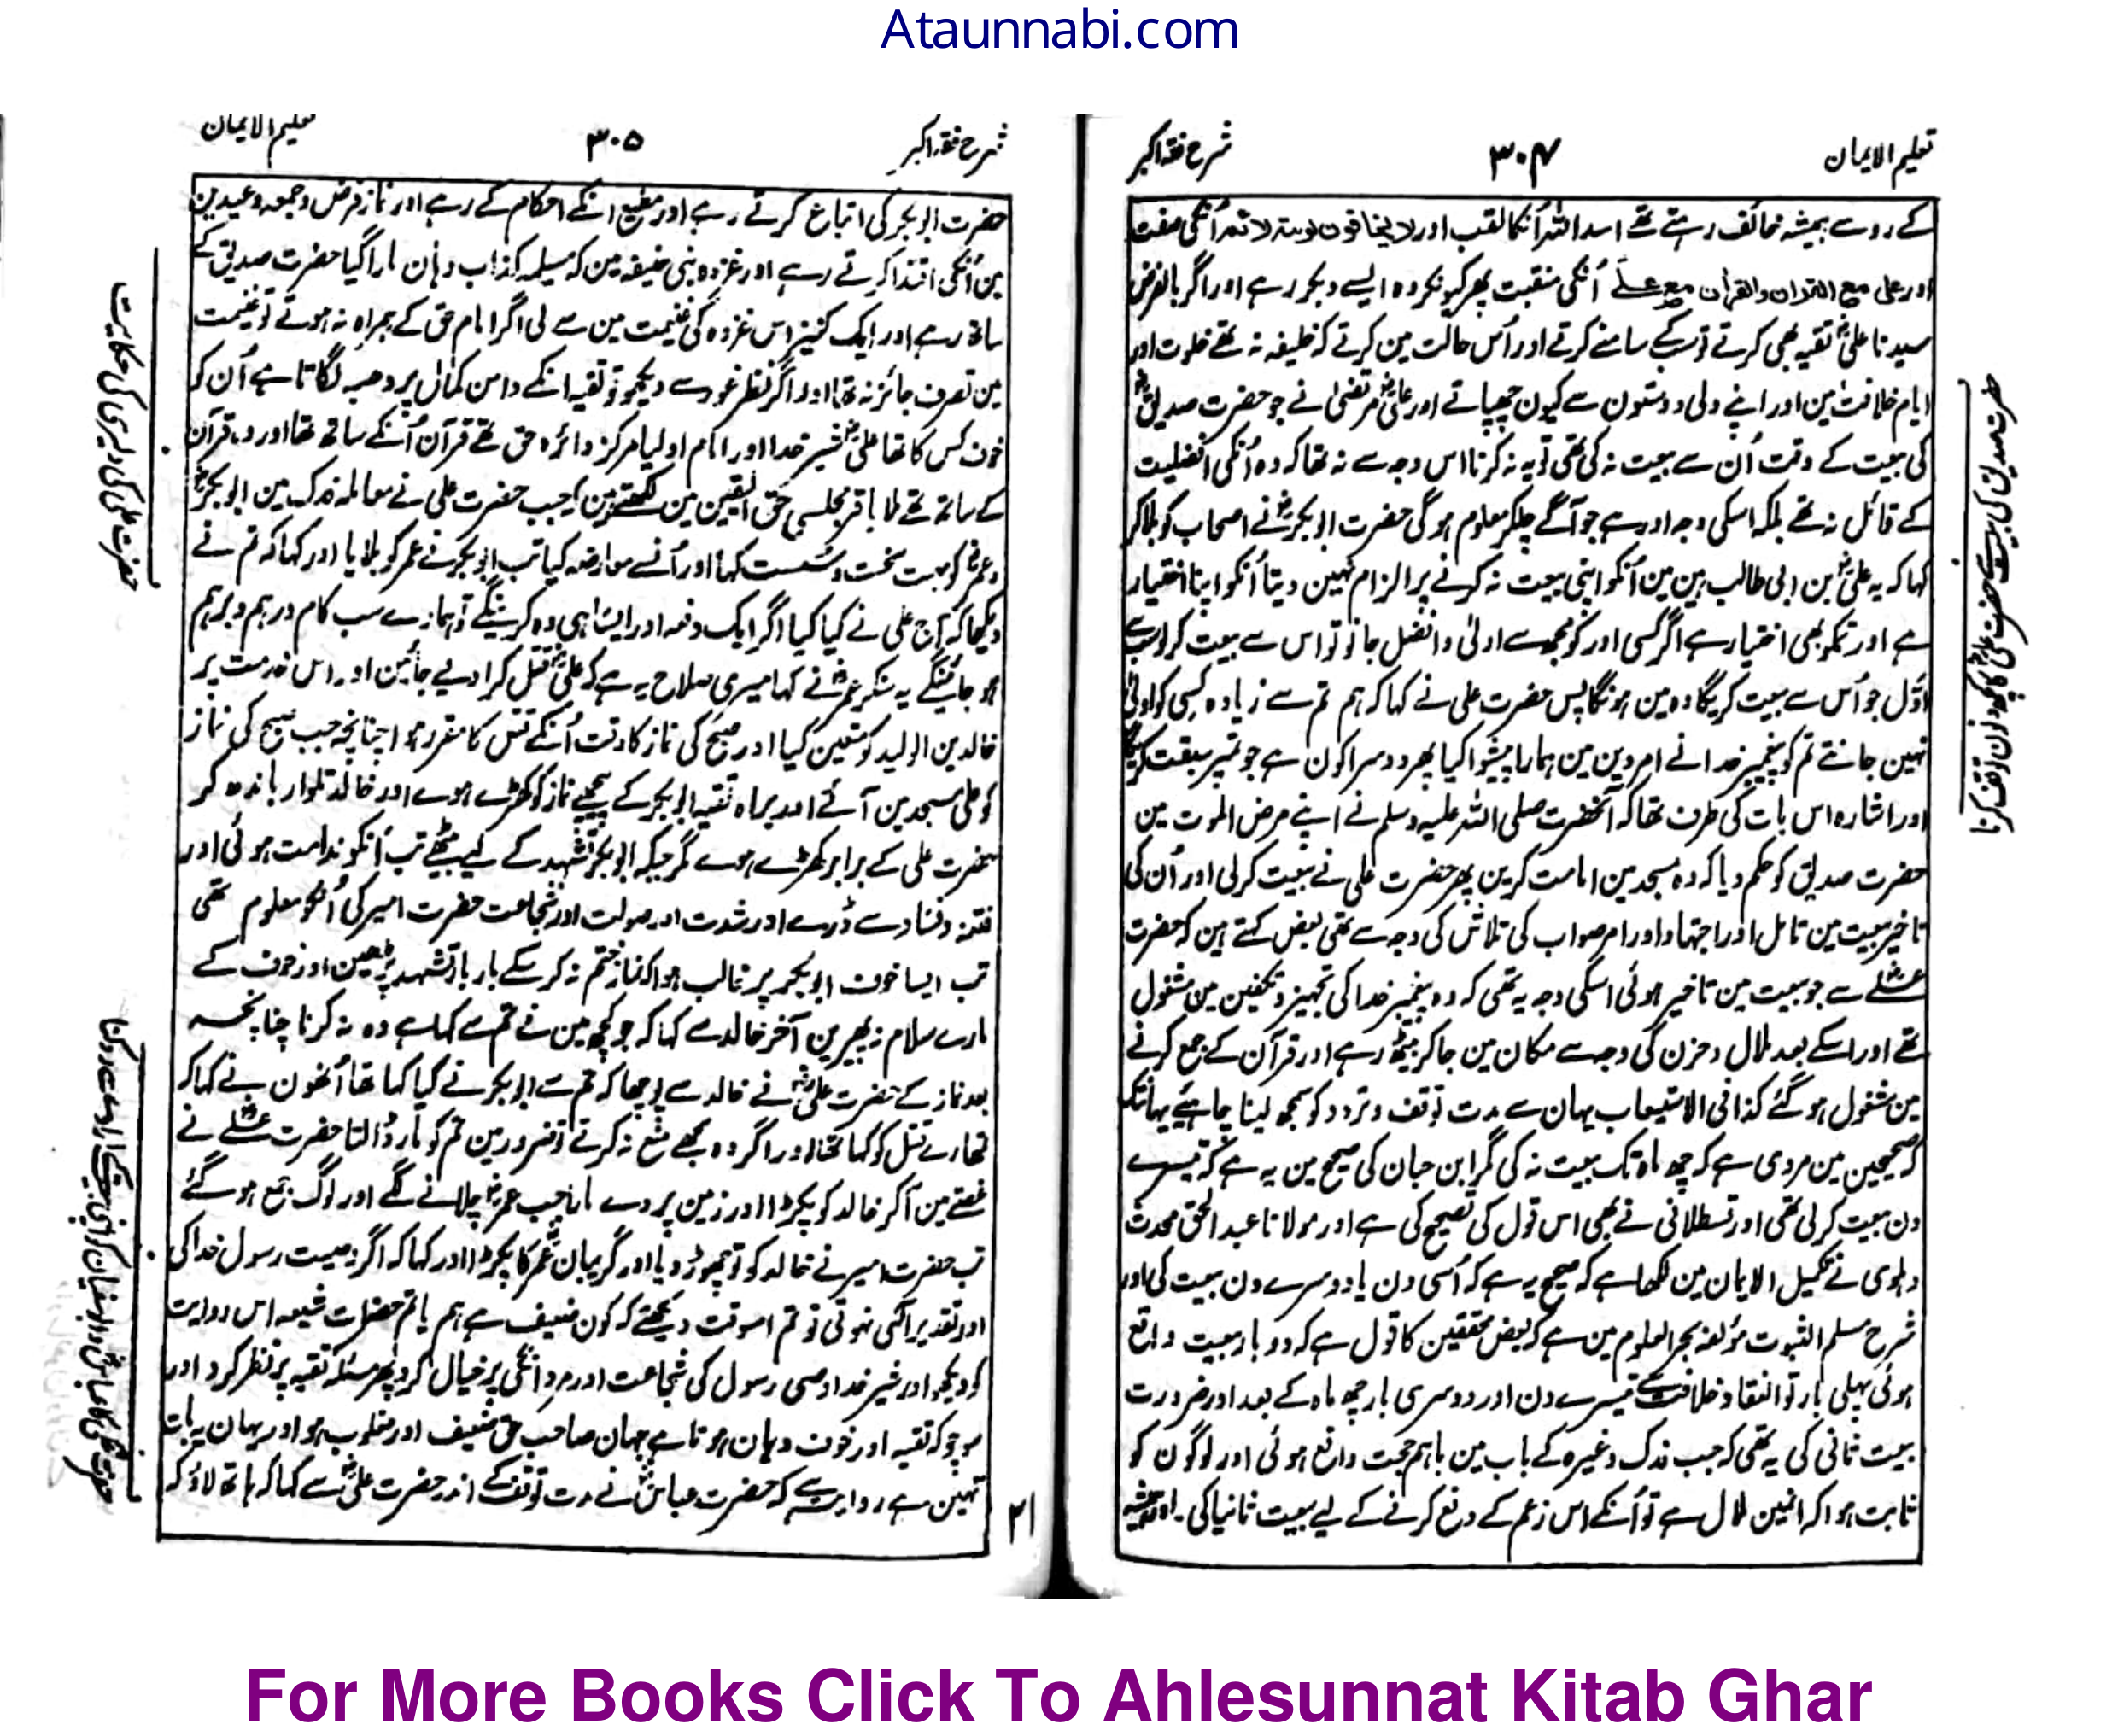 Ataunnabi.com
تعلیم الایمان
۳۰۴
شرح فقہ اکبر
کے روسے ہمیشہ مخالف رہتے تھے اسد اللہ اُنکا لقب اور لا یخافون لومۃ لائم اُنکی صفت
اور علی مع القرآن والقرآن مع علے اُنکی منقبت پھر کیونکر وہ ایسے دبکر رہے اور اگر بالفرض
سیدنا علیؓ تقیہ بھی کرتے تو سبکے سامنے کرتے اور اُس حالت مین کرتے کہ خلیفہ نہ تھے خلوت اور
ایام خلافت مین اور اپنے دلی دوستون سے کیون چھپاتے اور علیؓ مرتضیٰ نے جو حضرت صدیقؓ
کی بیعت کے وقت اُن سے بیعت نہ کی تھی تو یہ نہ کرنا اس وجہ سے نہ تھا کہ وہ اُنکی افضلیت
کے قائل نہ تھے بلکہ اسکی وجہ اور ہے جو آگے چلکر معلوم ہوگی حضرت ابوبکرؓ نے اصحاب کو بلاکر
کہا کہ یہ علیؓ بن ابی طالب ہین مین اُنکو اپنی بیعت نہ کرنے پر الزام نہین دیتا اُنکو اپنا اختیار
ہے اور تمکو بھی اختیار ہے اگر کسی اور کو مجھسے اولیٰ و افضل جانو تو اس سے بیعت کرو سب سے
اوّل جو اُس سے بیعت کریگا وہ مین ہونگا پس حضرت علی نے کہا کہ ہم تم سے زیادہ کسی کو اولیٰ
نہین جانتے تم کو پیغمبر خدا نے امر دین مین ہمارا پیشوا کیا پھر دوسرا کون ہے جو تمپر سبقت کریگا
اور اشارہ اس بات کی طرف تھا کہ آنحضرت صلی اللہ علیہ وسلم نے اپنے مرض الموت مین
حضرت صدیق کو حکم دیا کہ وہ مسجد مین امامت کرین پھر حضرت علی نے بیعت کرلی اور اُن کی
تاخیر بیعت مین تامل اور اجتہاد اور امر صواب کی تلاش کی وجہ سے تھی بعض کہتے ہین کہ حضرت
علےؓ سے جو بیعت مین تاخیر ہوئی اسکی وجہ یہ تھی کہ وہ پیغمبر خدا کی تجہیز و تکفین مین مشغول
تھے اور اسکے بعد ملال و حزن کی وجہ سے مکان مین جاکر بیٹھ رہے اور قرآن کے جمع کرنے
مین مشغول ہوگئے کذا فی الاستیعاب یہان سے مدت توقف و تردد کو سمجھ لینا چاہیئے یہانتک
کہ صحیحین مین مروی ہے کہ چھ ماہ تک بیعت نہ کی مگر ابن حبان کی صحیح مین یہ ہے کہ تیسرے
دن بیعت کرلی تھی اور قسطلانی نے بھی اس قول کی تصحیح کی ہے اور مولانا عبد الحق محدث
دہلوی نے تکمیل الایمان مین لکھا ہے کہ صحیح یہ ہے کہ اُسی دن یا دوسرے دن بیعت کی اور
شرح مسلم الثبوت مؤلفہ بحر العلوم مین ہے کہ بعض محققین کا قول ہے کہ دو بار بیعت واقع
ہوئی پہلی بار تو انعقاد خلافت کے تیسرے دن اور دوسری بار چھ ماہ کے بعد اور ضرورت
بیعت ثانی کی یہ تھی کہ جب فدک وغیرہ کے باب مین باہم حجت واقع ہوئی اور لوگون کو
ثابت ہوا کہ انہین ملال ہے تو اُنکے اس زعم کے دفع کرنے کے لیے بیعت ثانیا کی۔ اور ہمیشہ
حضرت صدیق کی بیعت سے حضرت علیؓ کا کچھ دنون توقف کرنا
شرح فقہ اکبر
۳۰۵
تعلیم الایمان
حضرت ابوبکر کی اتباع کرتے رہے اور مطیع انکے احکام کے رہے اور نماز فرض و جمعہ و عیدین
مین اُنکی اقتدا کرتے رہے اور غزوہ بنی حنیفہ مین کہ مسیلمہ کذاب وہان مارا گیا حضرت صدیق کے
ساتھ رہے اور ایک کنیز اس غزوہ کی غنیمت مین سے لی اگر امام حق کے ہمراہ نہ ہوتے تو غنیمت
مین تصرف جائز نہ تھا اور اگر نظر غور سے دیکھو تو تقیہ انکے دامن کمال پر دھبہ لگاتا ہے اُن کو
خوف کس کا تھا علیؓ شیر خدا اور امام اولیا مرکز دائرہ حق تھے قرآن اُنکے ساتھ تھا اور وہ قرآن
کے ساتھ تھے ملا باقر مجلسی حق الیقین مین لکھتے ہین کہ جب حضرت علی نے معاملہ فدک مین ابوبکرؓ
و عمرؓ کو بہت سخت و سست کہا اور اُنسے معارضہ کیا تب ابوبکر نے عمر کو بلایا اور کہا کہ تم نے
دیکھا کہ آج علی نے کیا کیا اگر ایک دفعہ اور ایسا ہی وہ کرینگے تو ہمارے سب کام درہم و برہم
ہو جائینگے یہ سنکر عمرؓ نے کہا میری صلاح یہ ہے کہ علیؓ قتل کرا دیے جائین اور اس خدمت پر
خالد بن الولید کو متعین کیا اور صبح کی نماز کا وقت اُنکے قتل کا مقرر ہوا چنانچہ جب صبح کی نماز
کو علی مسجد مین آئے اور براہ تقیہ ابوبکر کے پیچھے نماز کو کھڑے ہوے اور خالد تلوار باندھ کر
حضرت علی کے برابر کھڑے ہوے مگر جبکہ ابوبکرؓ تشہد کے لیے بیٹھے تب اُنکو ندامت ہوئی اور
فتنہ و فساد سے ڈرے اور شدت اور صولت اور شجاعت حضرت امیر کی اُنکو معلوم تھی
تب ایسا خوف ابوبکر پر غالب ہوا کہ نماز ختم نہ کر سکے بار بار تشہد پڑھین اور خوف کے
مارے سلام نہ پھیرین آخر خالد سے کہا کہ جو کچھ مین نے تم سے کہا ہے وہ نہ کرنا چنانچہ
بعد نماز کے حضرت علیؓ نے خالد سے پوچھا کہ تم سے ابوبکر نے کیا کہا تھا اُنھون نے کہا کہ
تمھارے قتل کو کہا تھا اور اگر وہ مجھے منع نہ کرتے تو ضرور مین تم کو مار ڈالتا حضرت علےؓ نے
غصے مین آکر خالد کو پکڑا اور زمین پر دے مارا جب عمرؓ چلانے لگے اور لوگ جمع ہوگئے
تب حضرت امیر نے خالد کو تو چھوڑ دیا اور گریبان عمر کا پکڑا اور کہا کہ اگر وصیت رسول خدا کی
اور تقدیر الٰہی نہوتی تو تم اسوقت دیکھتے کہ کون ضعیف ہے ہم یا تم حضرات شیعہ اس روایت
کو دیکھو اور شیر خدا وصی رسول کی شجاعت اور مردانگی پر خیال کرو پھر مسئلہ تقیہ پر نظر کرو اور
سوچو کہ تقیہ اور خوف وہان ہوتا ہے جہان صاحب حق ضعیف اور مغلوب ہو اور یہان یہ بات
نہین ہے روایت ہے کہ حضرت عباسؓ نے مدت توقف کے اندر حضرت علیؓ سے کہا کہ ہاتھ لاؤ کہ
۲۱
حضرت علی کی دلیری کی حکایت
For More Books Click To Ahlesunnat Kitab Ghar